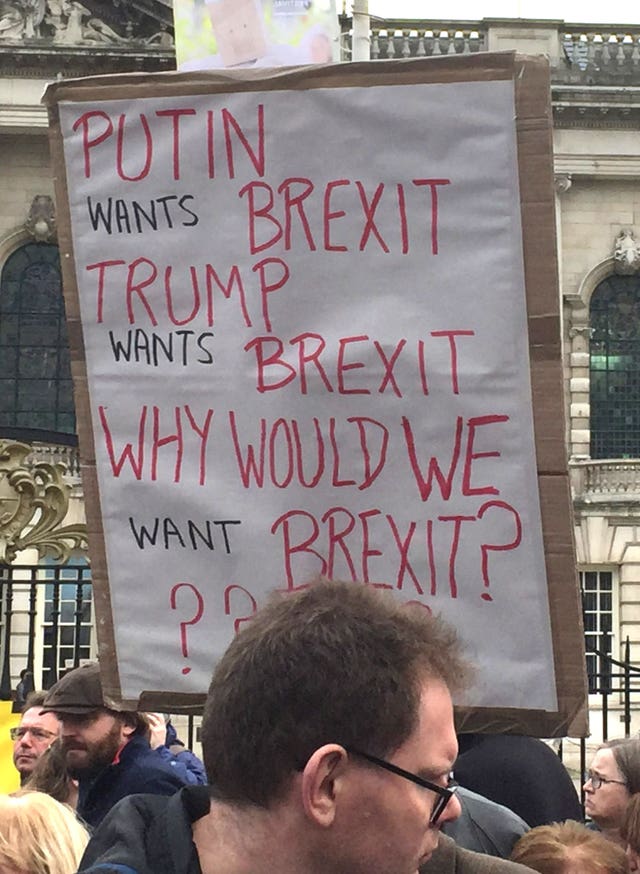 PUTIN
WANTS BREXIT
TRUMP
WANTS BREXIT
WHY WOULD WE
WANT BREXIT?
??